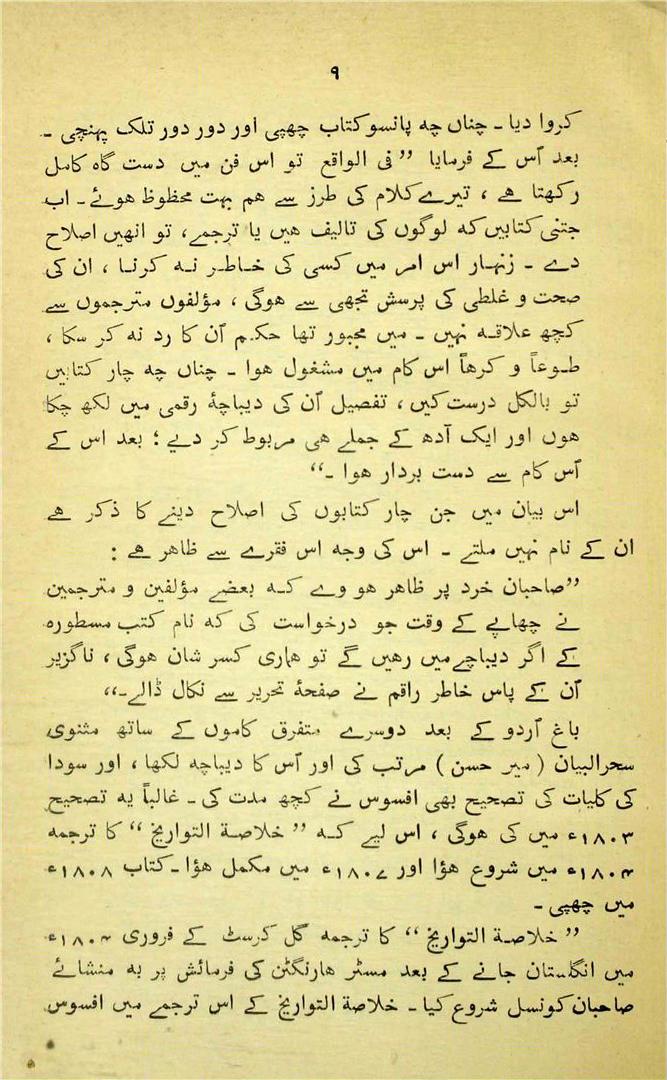 ۹
کروا دیا ـ چناں چه پانسو کتاب چھپی اور دور دور تلک پہنچی ـ
بعد اُس کے فرمایا ’’فی الواقع تو اس فن میں دست گاہ کامل
رکھتا ہے ، تیرے کلام کی طرز سے هم بہت محظوظ ہوئے ـ اب
جتنی کتابیں که لوگوں کی تالیف هیں یا ترجمے، تو انھیں اصلاح
دے ـ زنہار اس امر میں کسی کی خاطر نه کرنا ، ان کی
صحت و غلطی کی پرسش تجھی سے ہوگی ، مؤلفوں مترجموں سے
کچھ علاقه نہیں ـ میں مجبور تھا حکم اُن کا رد نه کر سکا ،
طوعاً و کرهاً اس کام میں مشغول ہوا ـ چناں چه چار کتابیں
تو بالکل درست کیں ، تفصیل اُن کی دیباچۂ رقمی میں لکھ چکا
هوں اور ایک آدھ کے جملے هی مربوط کر دیے ؛ بعد اس کے
اُس کام سے دست بردار هوا ـ‘‘
اس بیان میں جن چار کتابوں کی اصلاح دینے کا ذکر ہے
ان کے نام نہیں ملتے ـ اس کی وجه اس فقرے سے ظاہر ہے :
’’صاحبان خرد پر ظاهر ہو وے کہ بعضے مؤلفین و مترجمین
نے چھاپے کے وقت جو درخواست کی که نام کتب مسطورہ
کے اگر دیباچے میں رهیں گے تو ہماری کسر شان ہوگی ، ناگزیر
اُن کے پاس خاطر راقم نے صفحۂ تحریر سے نکال ڈالے ـ‘‘
باغ اُردو کے بعد دوسرے متفرق کاموں کے ساتھ مثنوی
سحرالبیان ( میر حسن ) مرتب کی اور اُس کا دیباچه لکھا ، اور سودا
کی کلیات کی تصحیح بھی افسوس نے کچھ مدت کی ـ غالباً یه تصحیح
۱۸۰۳ء میں کی ہوگی ، اس لیے کہ ’’ خلاصة التواریخ ‘‘ کا ترجمه
۱۸۰۴ء میں شروع هؤا اور ۱۸۰۷ء میں مکمل هؤا ـ کتاب ۱۸۰۸ء
میں چھپی ـ
’’ خلاصة التواریخ ‘‘ کا ترجمه گل کرسٹ کے فروری ۱۸۰۴ء
میں انگلستان جانے کے بعد مسٹر هارنگٹن کی فرمائش پر به منشائے
صاحبان کونسل شروع کیا ـ خلاصة التواریخ کے اس ترجمے میں افسوس